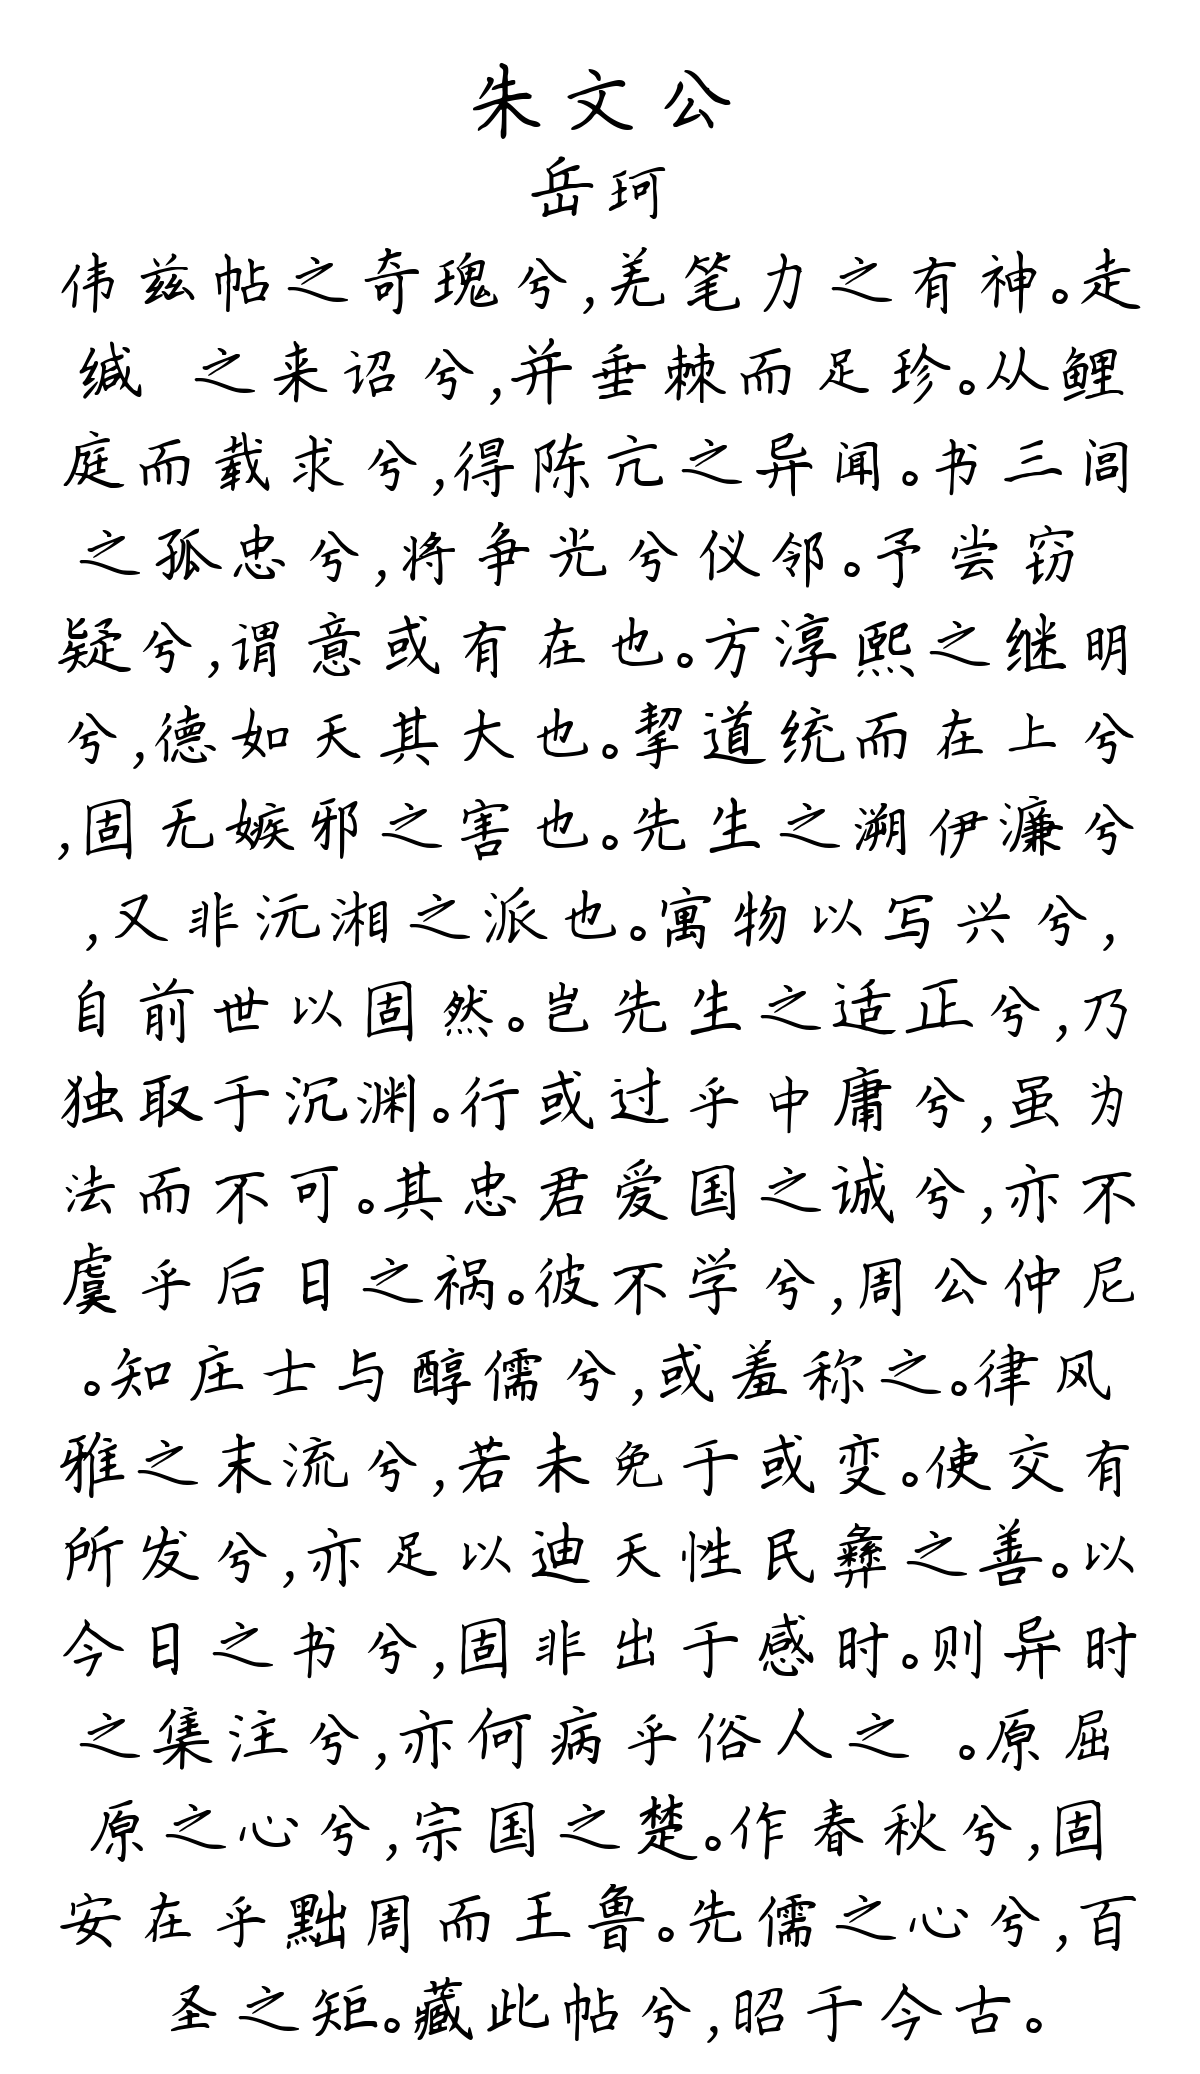 朱文公
岳珂
伟兹帖之奇瑰兮,羌笔力之有神。走
缄 之来诏兮,并垂棘而足珍。从鲤
庭而载求兮,得陈亢之异闻。书三闾
之孤忠兮,将争光兮仪邻。予尝窃
疑兮,谓意或有在也。方淳熙之继明
兮,德如天其大也。挈道统而在上兮
,固无嫉邪之害也。先生之溯伊濂兮
,又非沅湘之派也。寓物以写兴兮,
自前世以固然。岂先生之适正兮,乃
独取于沉渊。行或过乎中庸兮,虽为
法而不可。其忠君爱国之诚兮,亦不
虞乎后日之祸。彼不学兮,周公仲尼
。知庄士与醇儒兮,或羞称之。律风
雅之末流兮,若未免于或变。使交有
所发兮,亦足以迪天性民彝之善。以
今日之书兮,固非出于感时。则异时
之集注兮,亦何病乎俗人之 。原屈
原之心兮,宗国之楚。作春秋兮,固
安在乎黜周而王鲁。先儒之心兮,百
圣之矩。藏此帖兮,昭于今古。